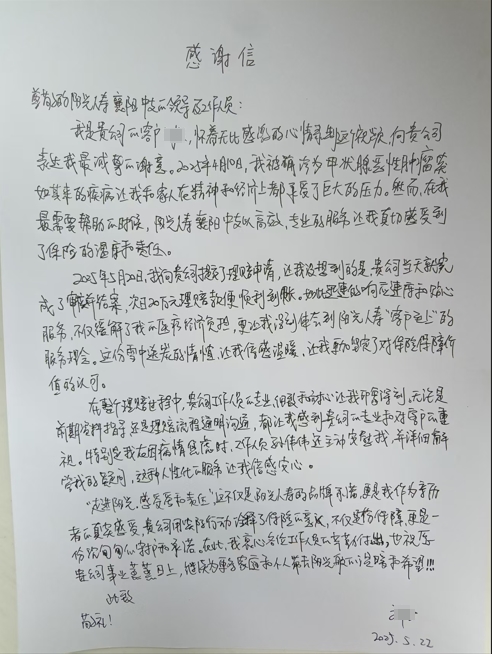 感谢信
尊敬的阳光人寿襄阳中支的领导及工作人员：
我是贵公司的客户 怀着无比感激的心情 向贵公司
表达我最诚挚的谢意。2025年4月10日，我被确诊为甲状腺恶性肿瘤，突
如其来的疾病让我和家人在精神和经济上都承受了巨大的压力。然而，在我
最需要帮助的时候，阳光人寿襄阳中支以高效、专业的服务让我真切感受到
了保险的温度和责任。
2025年5月20日，我向贵公司提交了理赔申请，让我没想到的是，贵公司当天就完
成了审核结案，次日20万元理赔款便顺利到账。如此迅速的响应速度和贴心
服务，不仅缓解了我的医疗经济负担，更让我深刻体会到阳光人寿“客户至上”的
服务理念。这份雪中送炭的情谊，让我倍感温暖，让我更加坚定了对保险保障价
值的认可。
在整个理赔过程中，贵公司工作人员的专业、细致和耐心让我印象深刻。无论是
前期资料指导，还是理赔流程透明沟通，都让我感到贵公司的专业和对客户的重
视。特别是我在因病情焦虑时，工作人员 还主动安慰我，并详细解
答我的疑问，这种人性化的服务让我倍感安心。
“走进阳光，感受爱和责任”这不仅是阳光人寿的品牌承诺，更是我作为亲历
者的真实感受。贵公司用实际行动诠释了保险的意义，不仅是份保障，更是一
份沉甸甸的守护和承诺。在此，我衷心感谢工作人员的辛苦付出，也祝愿
贵公司事业蒸蒸日上，继续为更多家庭和个人带去阳光般的温暖和希望!!!
此致
敬礼！
2025.5.22